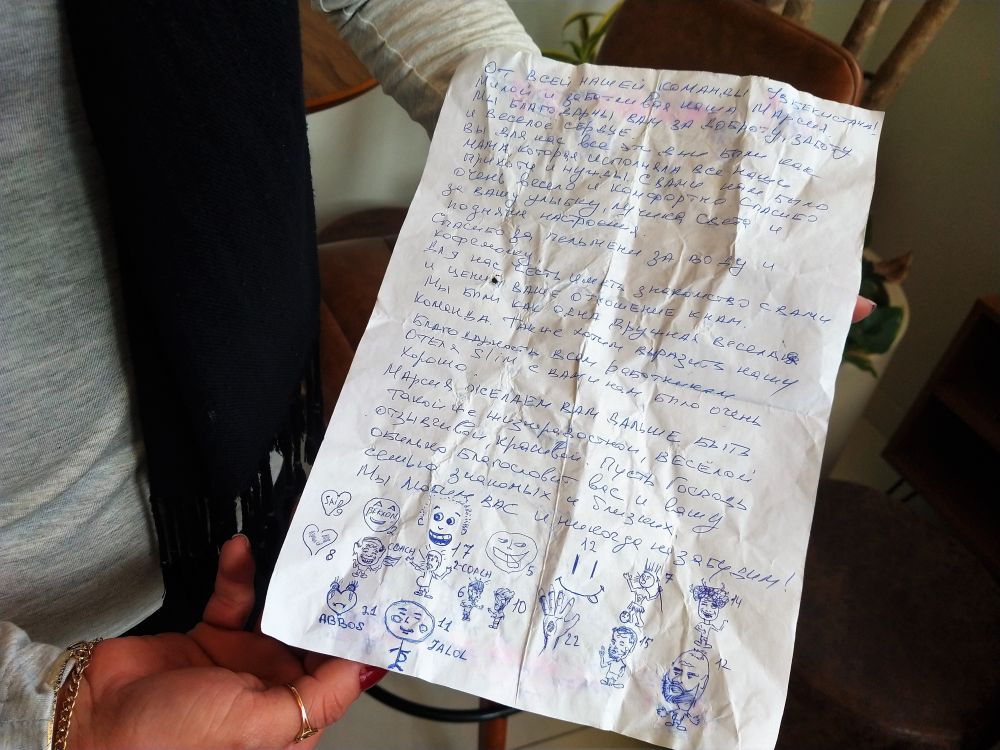 ОТ ВСЕЙ НАШЕЙ КОМАНДЫ УЗБЕКИСТАНА!
Милой и заботливая наша Марсия.
МЫ БЛАГОДАРНЫ ВАМ ЗА ДОБРОТУ, ЗАБОТУ
И ВЕСЕЛОЕ СЕРДЦЕ.
ВЫ ДЛЯ НАС ВСЕ ЭТИ ДНИ БЫЛИ КАК
МАМА КОТОРАЯ ИСПОЛНЯЛА ВСЕ НАШИ
ПРИХОТИ И НУЖДЫ С ВАМИ НАМ БЫЛО
ОЧЕНЬ ВЕСЕЛО И КОМФОРТНО СПАСИБО
ЗА ВАШУ УЛЫБКУ, ЛУЧИКА СВЕТА И
ПОДНЯТИЕ НАСТРОЕНИЯ.
СПАСИБО ЗА ПЕЛЬМЕНИ ЗА ВОДУ И
КОФЕМОЛКУ.
ДЛЯ НАС ЧЕСТЬ ИМЕТЬ ЗНАКОМСТВО С ВАМИ
И ЦЕНИМ ВАШЕ ОТНОШЕНИЕ К НАМ.
МЫ БЫЛИ КАК ОДНА ДРУЖНАЯ ВЕСЕЛАЯ
КОМАНДА. ТАКЖЕ ХОТИМ ВЫРАЗИТЬ НАШУ
БЛАГОДАРНОСТЬ ВСЕМ РАБОТНИКАМ
ОТЕЛЯ Slim С ВАМИ НАМ БЫЛО ОЧЕНЬ
ХОРОШО.
МАРСИЯ ЖЕЛАЕМ ВАМ ДАЛЬШЕ БЫТЬ
ТАКОЙ ЖЕ ЖИЗНЕРАДОСТНОЙ, ВЕСЁЛОЙ
ОТЗЫВЧИВОЙ, КРАСИВОЙ. ПУСТЬ ГОСПОДЬ
ОБИЛЬНО БЛАГОСЛОВИТ ВАС И ВАШУ
СЕМЬЮ ЗНАКОМЫХ И БЛИЗКИХ
МЫ ЛЮБИМ ВАС И НИКОГДА НЕ ЗАБУДИМ!
SAID
9
2
8
COACH
17
2-COACH
5
12
7
14
6
10
22
15
12
ABBOS 21
11
JALOL